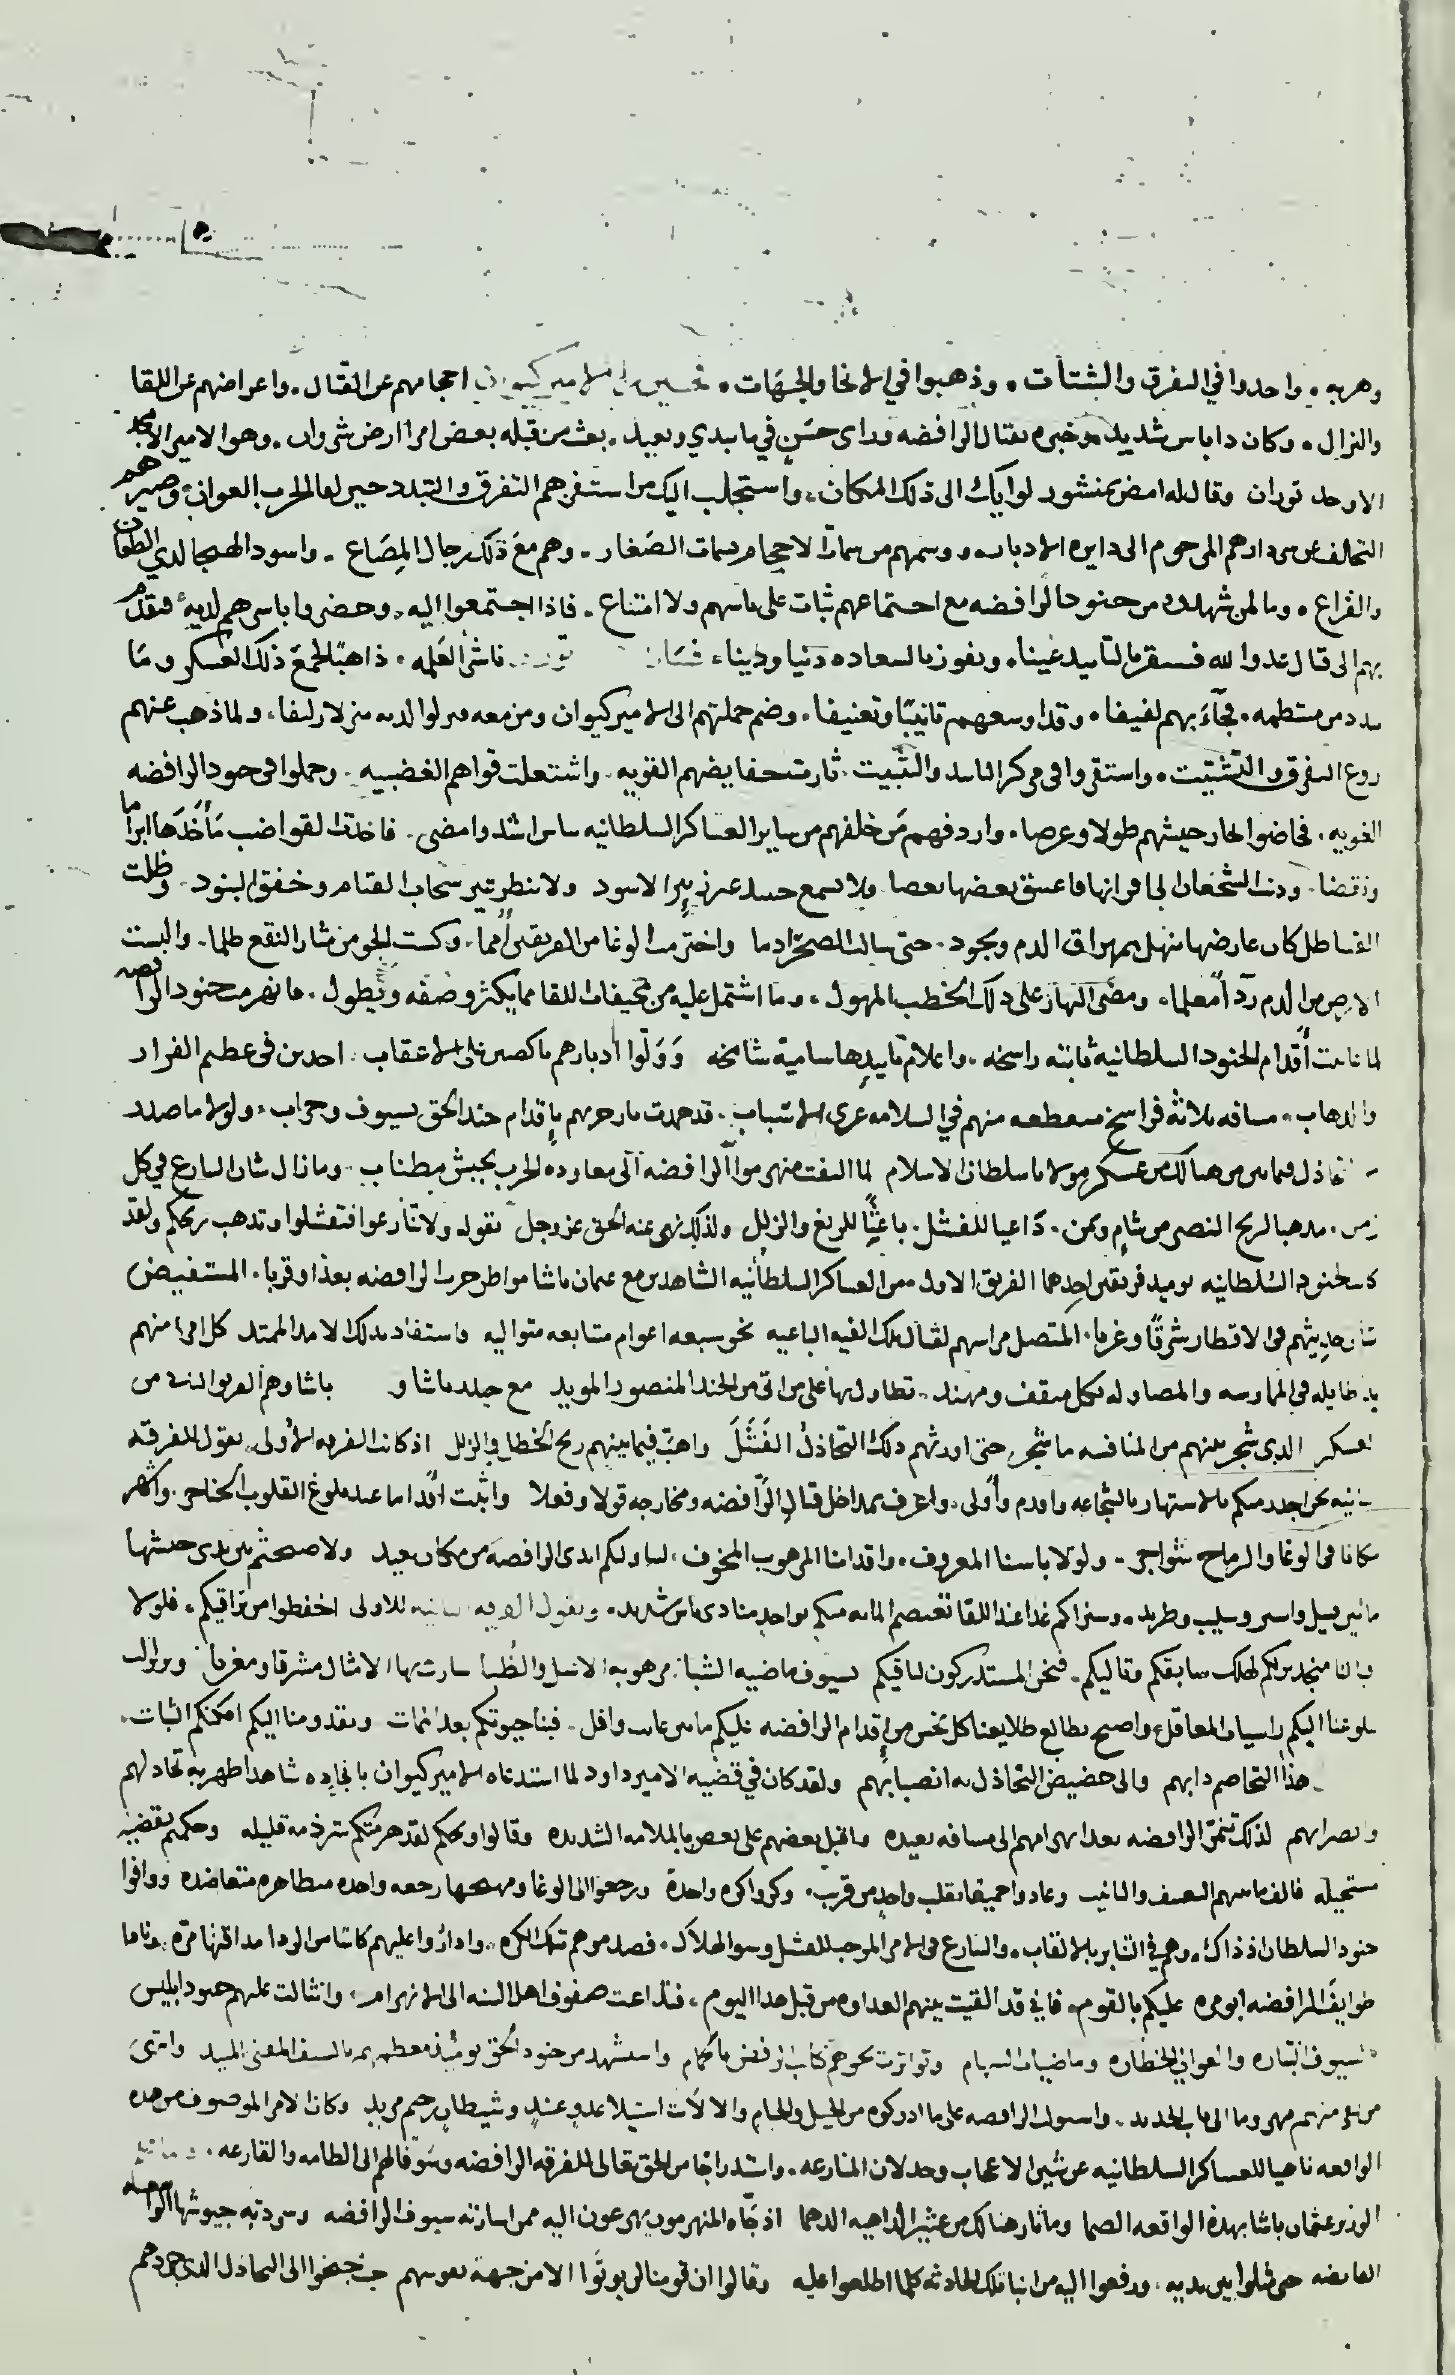 وهربه . واخذوا في التفرق والشتات . وذهبوا في الانحا والجهات . الامير كيوان احجامهم عن القتال . واعراضهم عن اللقا
والنزال . وكان ذا باس شديد وخبره بقتال الرافضه وراى حسن في ما يبدي ويعيد . بعث من قبله بعض امرا ارض شروان . وهو الامير الامجد
الاوحد توران وقال له امض بمنشور لوايك الى ذلك المكان . واستجلب اليك من استفزهم التفرق والتبدد حين لقا الحرب العوان . وصيرهم
التخالف عن سردارهم المرحوم الى دايره الادبار . ووسمهم من سمات الاحجام بسمات الصغار . وهم مع ذلك رجال المصاع . واسود الهيجا لدي الطعان
والقراع . وما لمن شهد من جنود الرافضه مع اجتماعهم ثبات على باسهم ولا امتناع . فاذا اجتمعوا اليه . وحضروا باسرهم لديه . فتقدم
بهم الى قتال عدوا لله فستقر بالتاييد عينا . وتفوز بالسعاده دنيا ودينا . ذاهبا لجمع ذلك العسكر وما
تبدد من منتظمه . فجآء بهم لفيفا . وقد اوسعهم تانيبا وتعنيفا . وضم جملتهم الى الامير كيوان ومن معه فنزلوا لديه منزلا رليفا . ولما ذهب عنهم
روع التفرق والتشتيت . واستقروا في مركز التاييد والتثبيت . ثارت حفايضهم القويه . واشتعلت قواهم الغضبيه . وحملوا في جنود الرافضه
الغويه . فخاضوا بحار جيشهم طولا وعرضا . واردفهم من خلفهم من ساير العساكر السلطانيه باس اشد وامضى . فاخذت القواضب مأخذها ابراما
ونقضا . ودنت الشجعان الى اقرانها فاعتنق بعضها بعضا فلا يسمع حينئذ غير زئير الاسود ولا ينظر غير سحاب القتام وخفوق البنود . وظلت
القساطل كان عارضها منهل بمهراق الدم ويجود . حتى سالت الصحرا دما واخترمت الوغا من الفريقين أمما . وكست الجو من مثار النقع ظلما . والبست
الارض من الدم ردآ معلما . ومضى النهار على ذلك الخطب المهول . وما اشتمل عليه من مخيفات اللقا مما يكثر وصفه ويطول . فانهزمت جنود الرافضه
لما ثابت أقدام الجنود السلطانيه ثابته راسخه . واعلام تاييدها سامية شامخه وولوا أدبارهم ناكصين على الاعقاب . اخذين في عظيم الفرار
والذهاب . مسافه ثلاثه فراسخ منقطعه منهم في السلامه عرى الاسباب . قد حمدت نار حربهم بإقدام جند الحق بسيوف وحراب . ولولا ما صدر
من تخاذل فيما بين من هنالك من عسكر مولانا سلطان الاسلام لما التفت منهزموا الرافضه الى معاوده الحرب بجيش مطناب . وما زال شان التنازع في كل
زمن . مذهبا لريح النصر من شام ويمن . داعيا للفشل . باعثا للزيغ والزلل ولذلك نهى عنه الحق عز وجل بقوله ولا تنازعوا فتفشلوا وتذهب ريحكم ولقد
كانت الجنود السلطانيه يوميذ فريقين احدهما الفريق الاول من العساكر السلطانيه الشاهدين مع عثمان باشا مواطن حرب الرافضه بعدا وقربا . المستفيض
شان حديثهم في الاقطار شرقا وغربا . المتصل مراسهم لقتال تلك الفيه الباغيه نحو سبعه اعوام متتابعه متواليه واستفاد بذلك الامد الممتد كل امرء منهم
يد طايله في الممارسه والمصاوله بكل مثقف ومهند . تطاول بها على من اتى من الجند المنصور المويد مع باشا و باشا وهم الفريق الثاني من
العسكر الذي شجر بينهم من المنافسه ما شجر حتى اورثهم ذلك التخاذل الفشل واهب فيما بينهم ريح الخطا والزلل اذ كانت الفرقه الأولى تقول للفرقه
الثانيه نحن اجدر منكم بالاشتهار بالشجاعه واقدم وأولى . واعرف بمداخل قتال الرافضه ومخارجه قولا وفعلا واثبت اقداما عند بلوغ القلوب الحناجر . واشهر
مكانا في الوغا والرماح شواجر . ولولا باسنا المعروف . واقدامنا المرهوب المخوف . لتناولتكم ايدى الرافضه من مكان بعيد ولاصبحتم بين يدى جيشها
مابين قتيل واسير وسليب وطريد . وسنراكم غدا عند اللقا منكم بواحد منا ذي باس شديد . وتقول الفرقه الثانيه للاولى اخفظوا من تراقيكم . فلولا
اتانا منجدين لكم لهلك سابقكم وتاليكم . فنحن المستدركون لباقيكم بسيوف ماضيه الشبا مرهوبه الاسل والظبا سارت بها الامثال مشرقا ومغربا
بلوغنا اليكم راسيات المعاقل . واصبح بطالع طلايعنا كل نحس من إقدام الرافضه عليكم مابين غايب وافل . فبنا حيوتكم بعد الممات وبقدومنا اليكم امكنكم الثبات .
هذا التخاصم دابهم والى حضيض التخاذل به انصبابهم ولقد كان في قضيه الامير داود لما استدعاه الامير كيوان بانجاده شاهدا ظهر به تخاذلهم
لذلك تنمر الرافضه بعد انهزامهم الى مسافه بعيده واقبل بعضهم على بعض بالملامه الشديده وقالوا ويحكم لقد هزمتكم شرذمه قليله وحكمتم بقضيه
مستحيله فالف ما بينهم التعنيف والتانيب وعادوا جميعا بقلب واحد من قريب . وكروا كره واحدة ورجعوا الى الوغا رجعه واحده متظاهره متعاضده ووافوا
جنود السلطان اذ ذاك . وهم في التنابز بالالقاب . والتنازع في الامر الموجب للفشل وسو الهلاك . فصدموهم تلك الكره . واداروا عليهم كاسا من الردا مذاقتها مره . وناد
طوايف الرافضه ابو مره عليكم بالقوم . فاني قد القيت بينهم العداوه من قبل هذا اليوم . فتداعت صفوف اهل السنه الى الانهزام . وانثالت عليهم جنود ابليس
بالسيوف البتاره والعوالي الخطاره وماضيات السهام وتواترت نحوهم كتايب الرفض واستشهد من جنود الحق يوميذ معظمهم بالسيف المفنى المبيد وانزوى
من بقى منهم مهزوما الى باب الحديد . واستولت الرافضه على ما ادركوه من الخيل والخيام والالات استيلا عدو عنيد وشيطان رجيم مريد وكان الامر الموصوف من هذه
الواقعه ناهيا للعساكر السلطانيه عن شين الاعجاب وخذلان المنازعه . واستدراجا من الحق تعالى للفرقه الرافضه وسوقا لهم الى الطامه والقارعه .
الوزير عثمان باشا بهذه الواقعه الصما وما ثار هنالك من عثير الداهيه الدهما اذ جاه المنهزمون يهرعون اليه ممن اسارته سيوف الرافضه وسردت به جيوشها
حتى مثلوا بين يديه . ورفعوا اليه من انبا تلك الحادثه كلما اطلعوا عليه وقالوا ان قومنا لم يوتوا الا من جهة نفوسهم حيث جنحوا الى التخاذل الذي